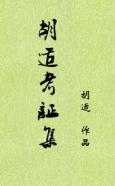 胡适考証集
胡适 作品